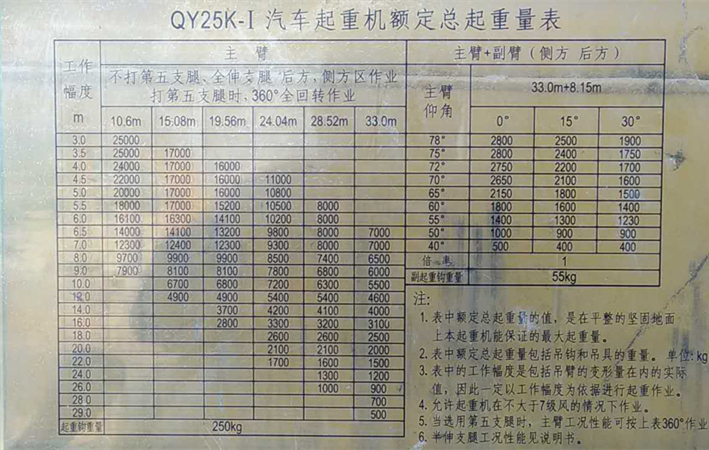 QY25K-I 汽车起重机额定总起重量表
工作幅度 m
主 臂
不打第五支腿、全伸支腿 后方,侧方区作业
打第五支腿时,360°全回转作业
10.6m 15.08m 19.56m 24.04m 28.52m 33.0m
3.0 25000
3.5 25000 17000
4.0 24000 17000 16000
4.5 22000 17000 16000 11000
5.0 20000 17000 16000 10800
5.5 18000 17000 15200 10500 8000
6.0 16100 16300 14100 10200 8000
6.5 14000 14100 13200 9800 8000 7000
7.0 12300 12400 12300 9300 8000 7000
8.0 9700 9900 9900 8500 7400 6500
9.0 7900 8100 8100 7800 6800 6000
10.0 6700 6800 7200 6300 5500
12.0 4900 4900 5400 5400 4600
14.0 3700 4200 4100 4000
16.0 2800 3300 3200 3100
18.0 2600 2600 2500
20.0 2100 2100 2000
22.0 1700 1600 1500
24.0 1300 1200
26.0 1000 900
28.0 700
29.0 500
起重钩重量 250kg
主臂+副臂(侧方 后方)
主臂仰角
33.0m+8.15m
0° 15° 30°
78° 2800 2500 1900
75° 2800 2400 1750
72° 2750 2200 1700
70° 2650 2100 1600
65° 2150 1800 1500
60° 1800 1600 1400
55° 1400 1300 1230
50° 1000 900 900
40° 500 400 400
倍 率 1
副起重钩重量 55kg
注:
1. 表中额定总起重量的值,是在平整的坚固地面
上本起重机能保证的最大起重量。
2. 表中额定总起重量包括吊钩和吊具的重量。 单位:kg
3. 表中的工作幅度是包括吊臂的变形量在内的实际
值,因此一定以工作幅度为依据进行起重作业。
4. 允许起重机在不大于7级风的情况下作业。
5. 当选用第五支腿时,主臂工况性能可按上表360°作业
6. 半伸支腿工况性能见说明书。